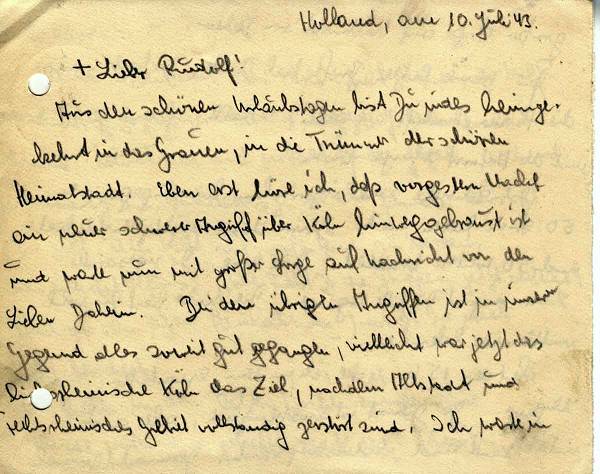 Holland, am 10. Juli 43.
+ Lieber Rudolf!
Aus den schönen Urlaubstagen bist Du indes heimge-
kehrt in das Grauen, in die Trümmer der schönen
Heimatstadt. Eben erst höre ich, daß vorgestern Nacht
ein neuer schwerer Angriff über Köln hinweggebraust ist
und warte nun mit großer Sorge auf Nachricht von den
Lieben Daheim. Bei den übrigen Angriffen ist in unserer
Gegend alles soweit gut gegangen, vielleicht war jetzt das
linksrheinische Köln das Ziel, nachdem Altstadt und
rechtsrheinisches Gebiet vollständig zerstört sind. Ich warte in